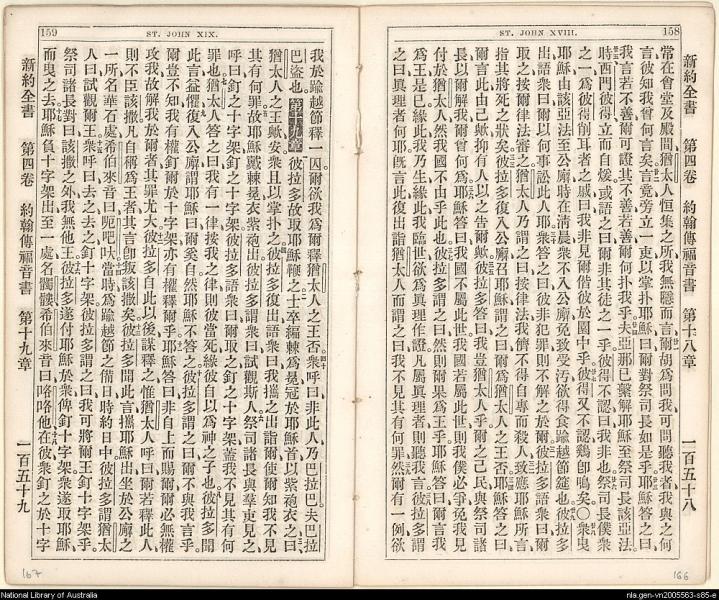 158
ST. JOHN XVIII.
新約全書 第四卷 約翰傳福音書 第十八章 一百五十八
常在會堂及殿間猶太人恒集之所我無隱而言爾胡為問我可問聽我者我與之何
言彼知我曾何言矣言竟旁立一吏以掌扑耶穌曰爾對祭司長如是乎耶穌答之曰
我言若不善爾可證其不善若善爾何扑我乎夫亞那已繫解耶穌至祭司長該亞法
時西門彼得立而自煖或語之曰爾非其徒之一乎彼得不認曰我非也祭司長僕衆
之一為彼得削耳者之戚曰我非見爾偕彼於園中乎彼得又不認鷄卽鳴矣○衆曳
耶穌由該亞法至公廨時在清晨衆不入公廨免致受汚欲得食踰越節筵也彼拉多
出語衆曰爾以何事訟此人耶衆答之曰彼非犯罪則不解之於爾彼拉多語衆曰爾
取之按爾律法審之猶太人乃謂之曰按律法我儕不得自專而殺人致應耶穌所言
指其將死之狀矣彼拉多復入公廨召耶穌謂之曰爾為猶太人之王否耶穌答之曰
爾言此由己歟抑有人以之告爾歟彼拉多答曰我豈猶太人乎爾之己民與祭司諸
長以爾解我爾曾何為耶穌答曰我國不屬此世我國若屬此世則我僕必爭免我見
付於猶太人然我國不由乎此也彼拉多謂之曰然則爾果為王乎耶穌答曰爾言我
為王是已緣此我乃生緣此我臨世欲為眞理作證凡屬眞理者則聽我言彼拉多謂
之曰眞理者何耶旣言此復出詣猶太人而謂之曰我不見其有何罪然爾有一例欲
166
159
ST. JOHN XIX.
我於踰越節釋一囚爾欲我為爾釋猶太人之王否衆呼曰非此人乃巴拉巴夫巴拉
巴盜也 第十九章 彼拉多故取耶穌鞭之士卒編棘為冕冠於耶穌首以紫袍衣之曰
猶太人之王歟安衆且以掌扑之彼拉多復出語衆曰我攜之出詣爾使爾知我不見
其有何罪故耶穌戴棘冕衣紫袍出彼拉多謂衆曰試觀斯人祭司諸長與羣吏見之
呼曰釘之十字架釘之十字架彼拉多語衆曰爾取之釘之十字架蓋我不見其有何
罪也猶太人答之曰我有一律按我之律則彼當死緣彼自以為神之子也彼拉多聞
此言益懼復入公廨謂耶穌曰爾奚自然耶穌不答之彼拉多謂之曰爾不與我言乎
爾豈不知我有權釘爾於十字架亦有權釋爾乎耶穌答曰非自上而賜爾爾必無權
攻我故解我於爾者其罪尤大彼拉多自此以後謀釋之惟猶太人呼曰爾若釋此人
則不臣該撒凡自稱為王者其言卽叛該撒矣彼拉多聞此言攜耶穌出坐於公廨之
一所名華石處希伯來音曰呃吧吠當時為踰越節之備日時約日中彼拉多謂猶太
人曰試觀爾王衆呼曰去之去之釘十字架彼拉多謂之曰我可將爾王釘十字架乎
祭司諸長對曰該撒之外我無他王彼拉多遂付耶穌於衆俾釘十字架衆遂取耶穌
而曳之去耶穌負十字架出至一處名髑髏希伯來音曰咯咯他在彼衆釘之於十字
新約全書 第四卷 約翰傳福音書 第十九章 一百五十九
167
National Library of Australia
nla.gen-vn2005563-s85-e